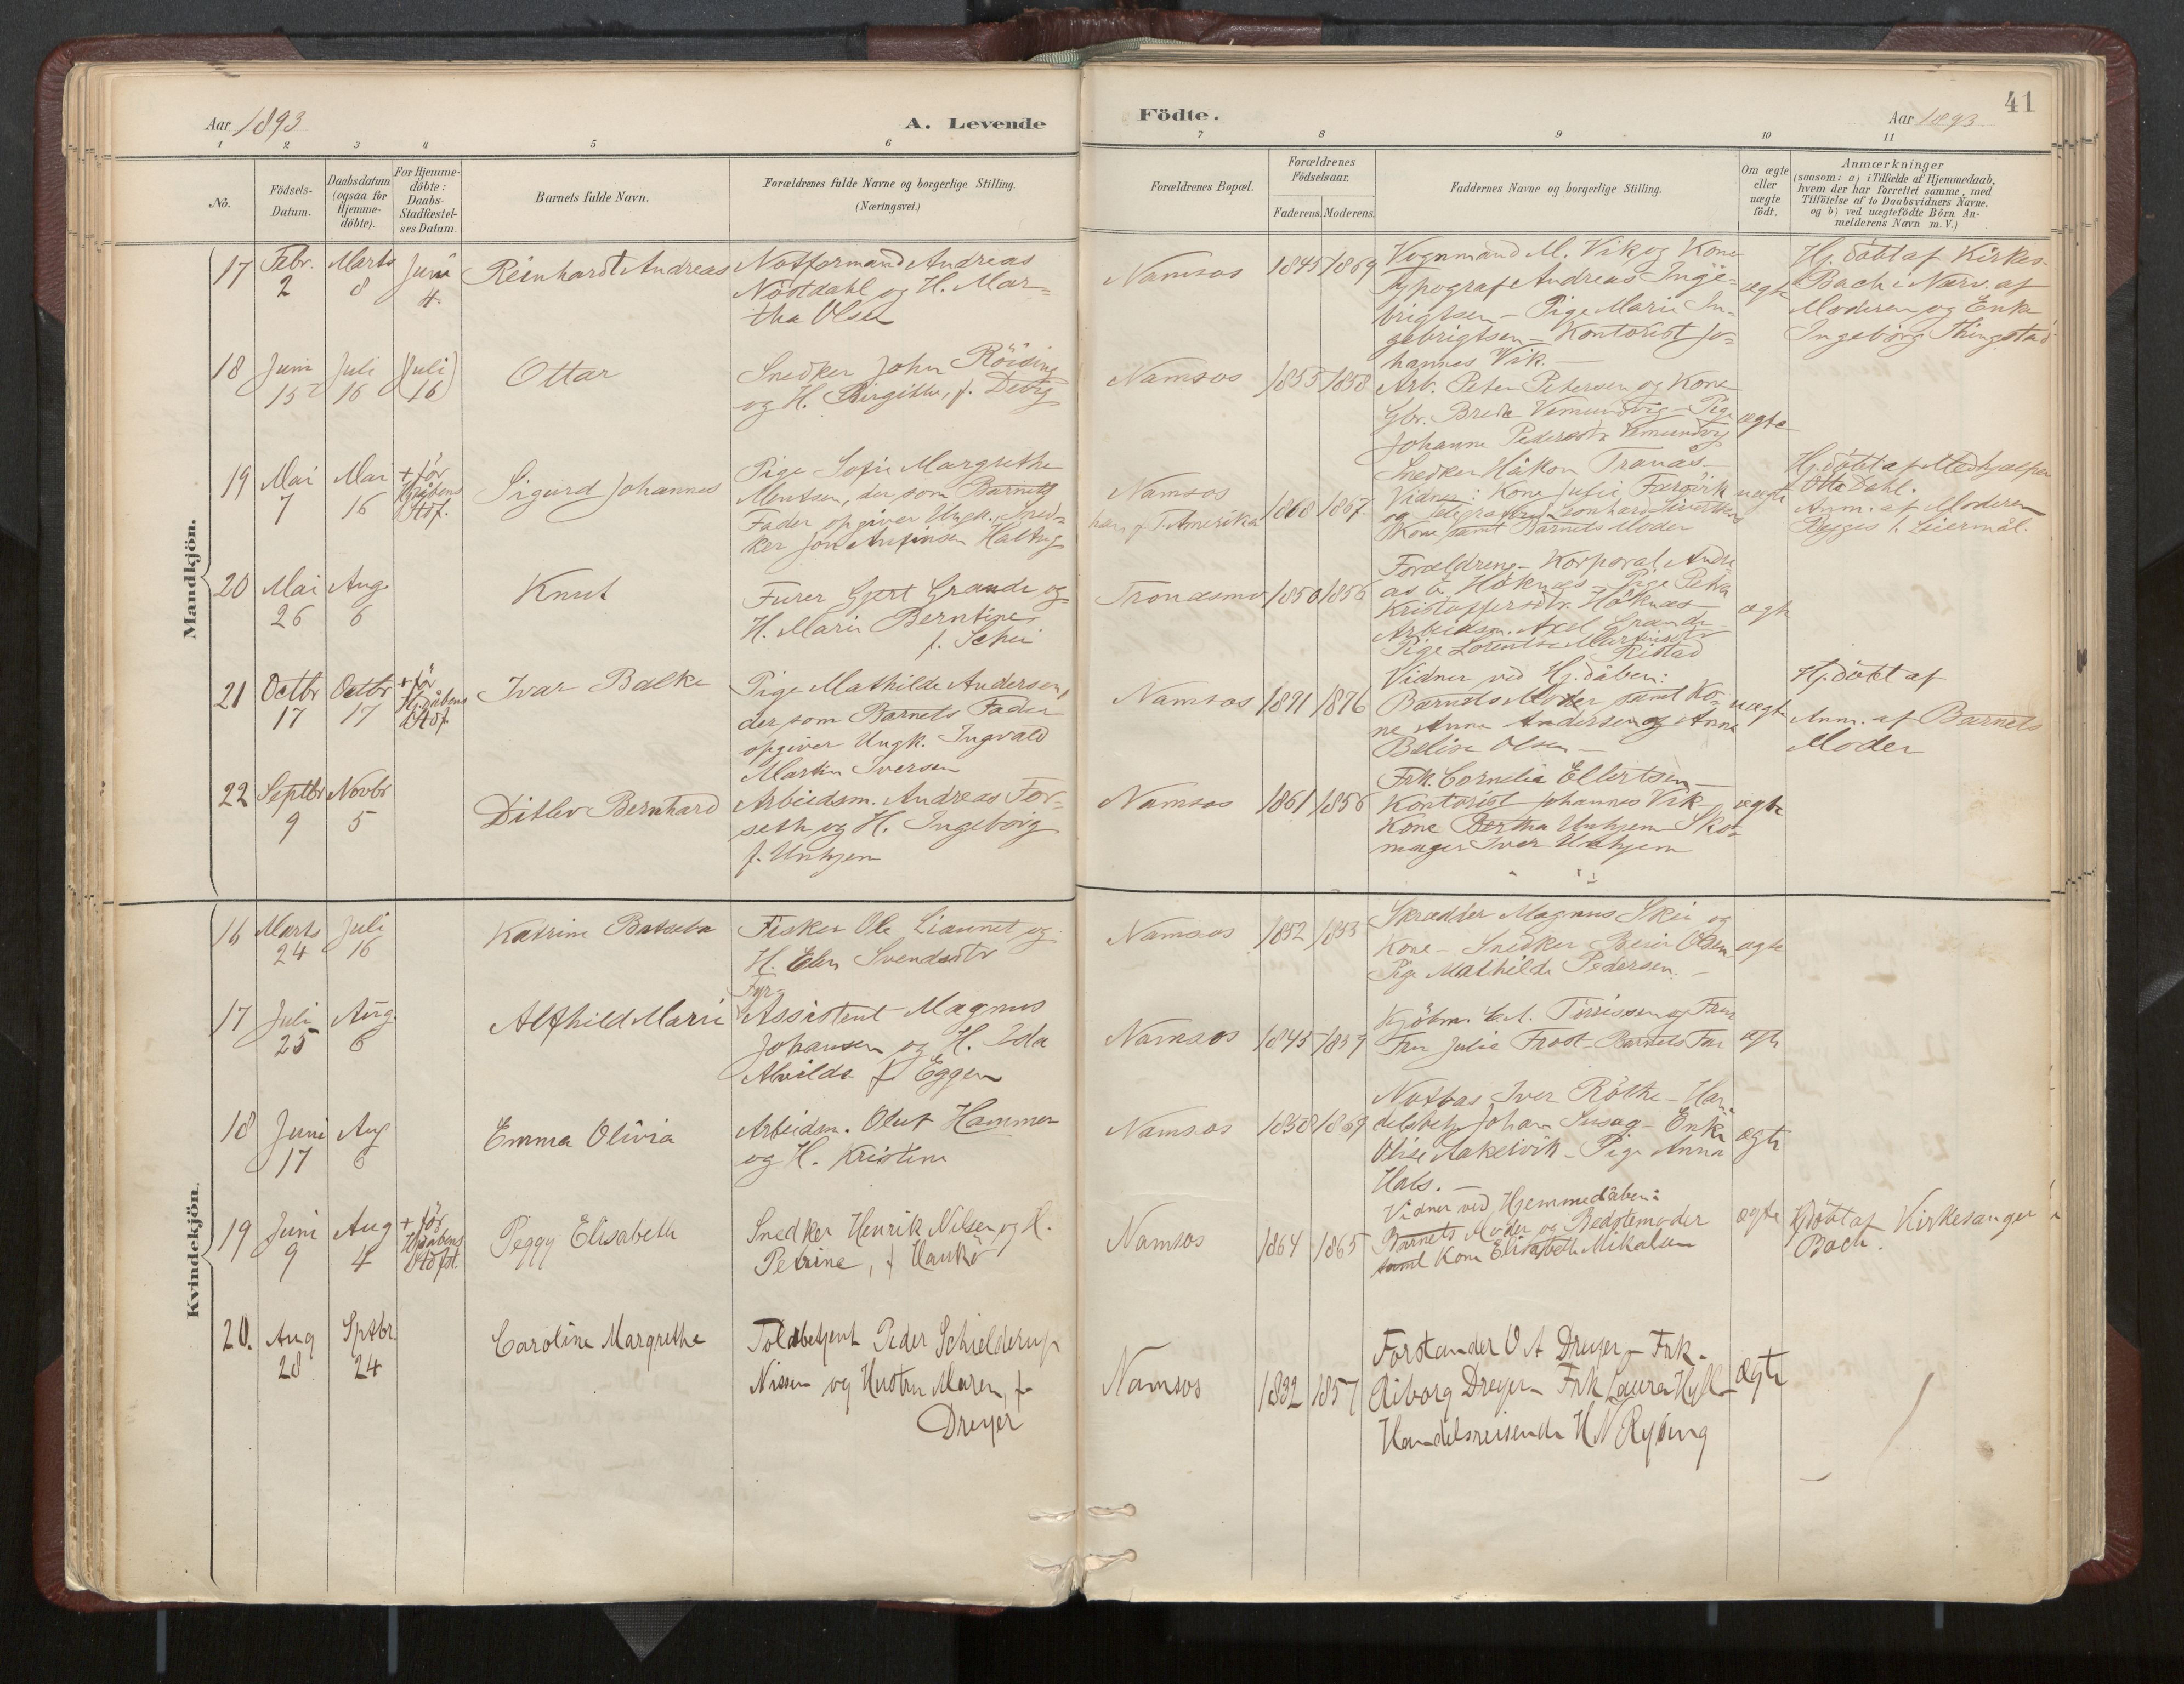 Aar 1893
A. Levende
Födte.
Aar 1893
41
1 2 3 4 5 6 7 8 9 10 11
No.
Födsels-
Datum.
Daabsdatum
(ogsaa för
Hjemme-
döbte).
For Hjemme-
döbte:
Daabs-
Stadfæstel-
ses Datum.
Barnets fulde Navn.
Forældrenes fulde Navne og borgerlige Stilling.
(Næringsvei.)
Forældrenes Bopæl.
Forældrenes
Födselsaar.
Faderens. Moderens.
Faddernes Navne og borgerlige Stilling.
Om ægte
eller
uægte
födt.
Anmærkninger
(saasom: a) i Tilfælde af Hjemmedaab,
hvem der har forrettet samme, med
Tilföielse af to Daabsvidners Navne.
og b) ved uægtefödte Börn An-
melderens Navn m. V.)
Mandkjön.
17
Febr.
2
Marts
8
Juni
4
Reinhardt Andreas
Notformand Andreas
Nöstdahl og H. Mar-
tha Olsen
Namsos
1845 1869
Vognmand M. Vik og Kone
Typograf Andreas Inge-
brigtsen - Pige Marie In-
gebrigtsen - Kontorist Jo-
hannes Vik.
ægte
Hj. döbt af Kirkes.
Bach i Nærv. af
Moderen og Enke
Ingeborg Thingstad
18
Juni
15
Juli
16
(Juli
16)
Ottar
Snedker John Röising
og H. Birgitte, f.
Namsos
1853 1858
Arb. Peter Petersen og Kone
Gbr. Brede Vemundvig - Pige
Johanne Pedersdtr Vemundvig
Snedker Håkon Tranås -
ægte
19
Mai
7
Mai
16
+ för
Hjdåbens
Stdf.
Sigurd Johannes
Pige Sofie Margrethe
Mentsen, der som Barnets
Fader opgiver Ungk. Sned-
ker Jon Anfinsen
Namsos
han p. T. Amerika
1868 1867
Vidner: Kone Julie
og Leonhard Sivertsens
Kone samt Barnets Moder
uægte
Hj. döbt af Medhjælper
Otto Dahl.
Anm. af Moderen
Bygges 1. Leiermål.
20
Mai
26
Aug.
6
Knut
Furer Gjert Grande og
H. Marie Berntine
f. Schei
1850 1856
Forældrene - Korporal Andre-
as Höknes - Pige Petra
Kristoffersdtr. Höknes
Arbeidsm. Axel Grande
Pige Lorentse Martinsdtr
Ristad
ægte
21
Octbr
17
Octbr
17
+ för
Hj.dåbens
Stdf.
Ivar Balke
Pige Mathilde Andersen,
der som Barnets Fader
opgiver Ungk. Ingvald
Martin Iversen
Namsos
1871 1876
Vidner ved Hj. dåben:
Barnets Moder samt Ko-
ne Anne Andersen og Anne
Beline Olsen -
uægte
Hj. döbt af
Anm. af Barnets
Moder
22
Septbr
9
Novbr
5
Ditlev Bernhard
Arbeidsm. Andreas For-
seth og H. Ingeborg
f. Unhjem
Namsos
1861 1856
Frk. Cornelia Ellertsen -
Kontorist Johannes Vik -
Kone Bertha Unhjem - Sko-
mager Iver Unhjem
ægte
Kvindekjön.
16
Marts
24
Juli
16
Katrine Batseba
Fisker Ole Liaunet og
H. Elen Svendsdtr
Namsos
1852 1853
Skrædder Magnus Skei og
Kone - Snedker Olsen
Pige Mathilde Pedersen. -
ægte
17
Juli
25
Aug.
6
Alfhild Marie
Fyr-
Assistent Magnus
Johansen og H. Ida
Alvilde f Eggen
Namsos
1845 1859
Kjöbm. Törrissen og Frue
Fru Julie Frost - Barnets Far
ægte
18
Juni
17
Aug
6
Emma Olivia
Arbeidsm. Oluf Hammer
og H. Kristine
Namsos
1858 1869
Notbas Iver Röthe - Han-
delsbetj Johan Susag - Enke
Olise - Pige Anna
Hals. -
ægte
19
Juni
9
Aug
4
+ för
Hjdåbens
Stdfst.
Peggy Elisabeth
Snedker Henrik Nilsen og H.
Petrine, f Haukö
Namsos
1864 1865
Vidner ved Hjemmedåben:
Barnets Moder og Bedstemoder
samt Kone Elisabeth Mikalsen
ægte
Hjdöbt af Kirkesanger
Bach.
20.
Aug
28
Sptbr.
24
Caroline Margrethe
Toldbetjent Peder Schielderup
Nissen og Hustru Maren, f.
Dreyer
Namsos
1832 1857
Forstander O A Dreyer - Frk.
Riborg Dreyer - Frk Laura
Handelsreisende H N Rysing
ægte